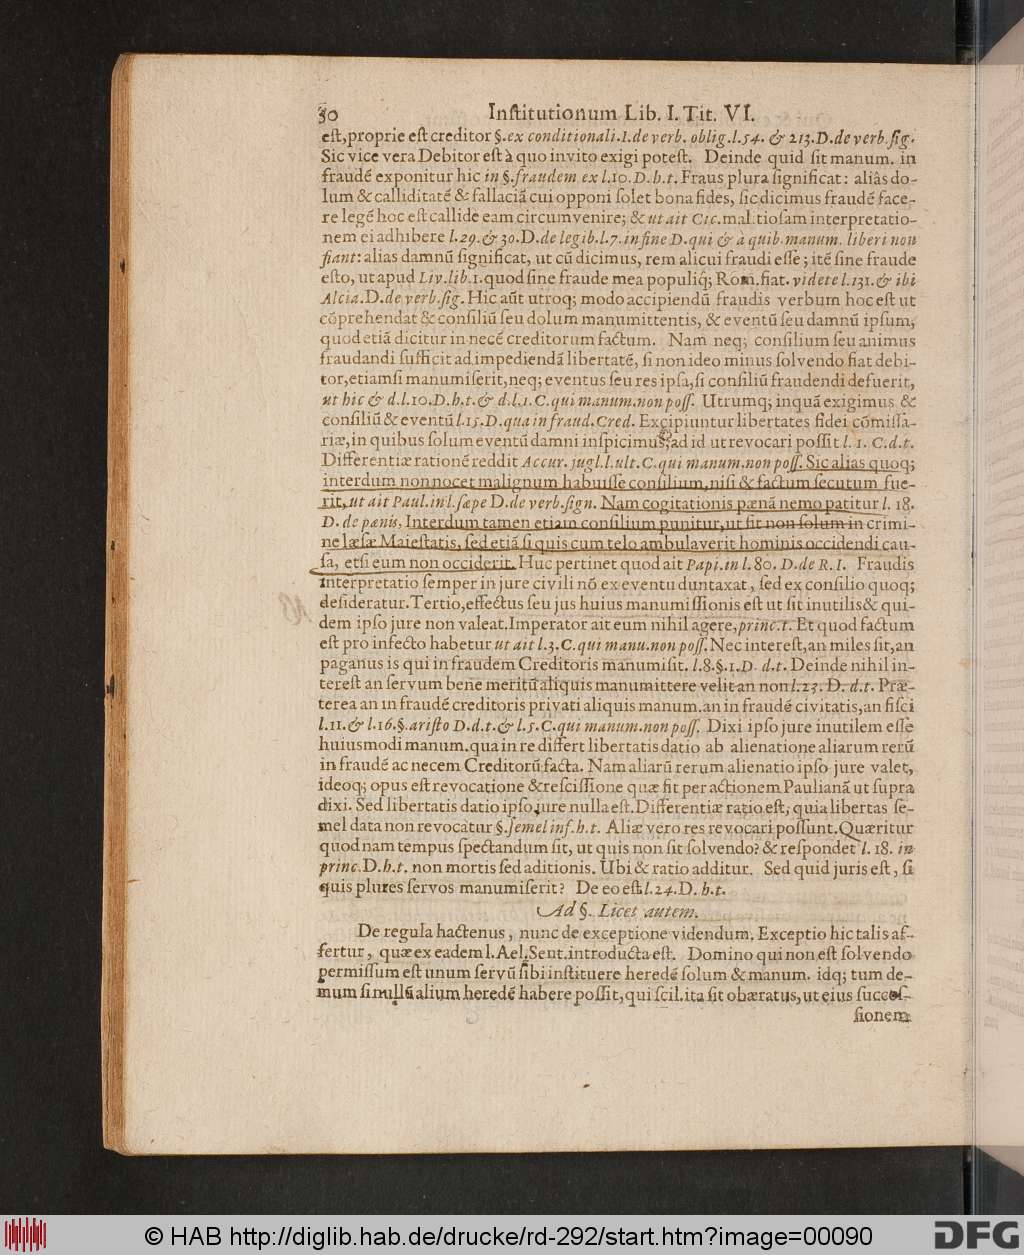 50 Institutionum Lib. I. Tit. VI.
est, proprie est creditor §. ex conditionali. I. de verb. oblig. l. 54. & 213. D. de verb. sig.
Sic vice vera Debitor est à quo invito exigi potest. Deinde quid sit manum. in
fraudē exponitur hic in §. fraudem ex l. 10. D. h. t. Fraus plura significat: aliâs do-
lum & calliditatē & fallaciā cui opponi solet bona fides, sic dicimus fraudē face-
re legē hoc est callide eam circumvenire; & ut ait Cic. mal tiosam interpretatio-
nem ei adhibere l. 29. & 30. D. de legib. l. 7. in fine D. qui & à quib. manum. liberi non
fiant: alias damnū significat, ut cū dicimus, rem alicui fraudi esse; itē sine fraude
esto, ut apud Liv. lib. 1. quod sine fraude mea populiq; Rom. fiat. videte l. 131. & ibi
Alcia. D. de verb. sig. Hic aūt utroq; modo accipiendū fraudis verbum hoc est ut
cōprehendat & consiliū seu dolum manumittentis, & eventū seu damnū ipsum,
quod etiā dicitur in necē creditorum factum. Nam neq; consilium seu animus
fraudandi sufficit ad impediendā libertatē, si non ideo minus solvendo fiat debi-
tor, etiamsi manumiserit, neq; eventus seu res ipsa, si consiliū fraudendi defuerit,
ut hic & d. l. 10. D. h. t. & d. l. 1. C. qui manum. non poss. Utrumq; inquā exigimus &
consiliū & eventū l. 15. D. qua in fraud. Cred. Excipiuntur libertates fidei cōmissa-
riæ, in quibus solum eventū damni inspicimus, ad id ut revocari possit l. 1. C. d. t.
Differentiæ rationē reddit Accur. jugl. l. ult. C. qui manum. non poss. Sic alias quoq;
interdum non nocet malignum habuisse consilium, nisi & factum secutum fue-
rit, ut ait Paul. in l. sæpe D. de verb. sign. Nam cogitationis pænā nemo patitur l. 18.
D. de pænis, Interdum tamen etiam consilium punitur, ut sit non solum in crimi-
ne læsæ Maiestatis, sed etiā si quis cum telo ambulaverit hominis occidendi cau-
sa, etsi eum non occiderit. Huc pertinet quod ait Papi. in l. 80. D. de R. I. Fraudis
interpretatio semper in jure civili nō ex eventu duntaxat, sed ex consilio quoq;
desideratur. Tertio, effectus seu jus huius manumissionis est ut sit inutilis & qui-
dem ipso jure non valeat. Imperator ait eum nihil agere, princ. t. Et quod factum
est pro infecto habetur ut ait l. 3. C. qui manu. non poss. Nec interest, an miles sit, an
paganus is qui in fraudem Creditoris manumisit. l. 8. §. 1. D. d. t. Deinde nihil in-
terest an servum bene meritū aliquis manumittere velit an non l. 23. D. d. t. Præ-
terea an in fraudē creditoris privati aliquis manum. an in fraudē civitatis, an fisci
l. 11. & l. 16. §. aristo D. d. t. & l. 5. C. qui manum. non poss. Dixi ipso jure inutilem esse
huiusmodi manum. qua in re differt libertatis datio ab alienatione aliarum rerū
in fraudē ac necem Creditorū facta. Nam aliarū rerum alienatio ipso jure valet,
ideoq; opus est revocatione & rescissione quæ fit per actionem Paulianā ut supra
dixi. Sed libertatis datio ipso jure nulla est. Differentiæ ratio est; quia libertas se-
mel data non revocatur §. semel inf. h. t. Aliæ vero res revocari possunt. Quæritur
quodnam tempus spectandum sit, ut quis non sit solvendo? & respondet l. 18. in
princ. D. h. t. non mortis sed aditionis. Ubi & ratio additur. Sed quid juris est, si
quis plures servos manumiserit? De eo est l. 24. D. h. t.
Ad §. Licet autem.
De regula hactenus, nunc de exceptione videndum. Exceptio hic talis af-
fertur, quæ ex eadem l. Ael. Sent. introducta est. Domino qui non est solvendo
permissum est unum servū sibi instituere heredē solum & manum. idq; tum de-
mum si nullū alium heredē habere possit, qui scil. ita sit obæratus, ut eius succes-
sionem
© HAB http://diglib.hab.de/drucke/rd-292/start.htm?image=00090
DFG